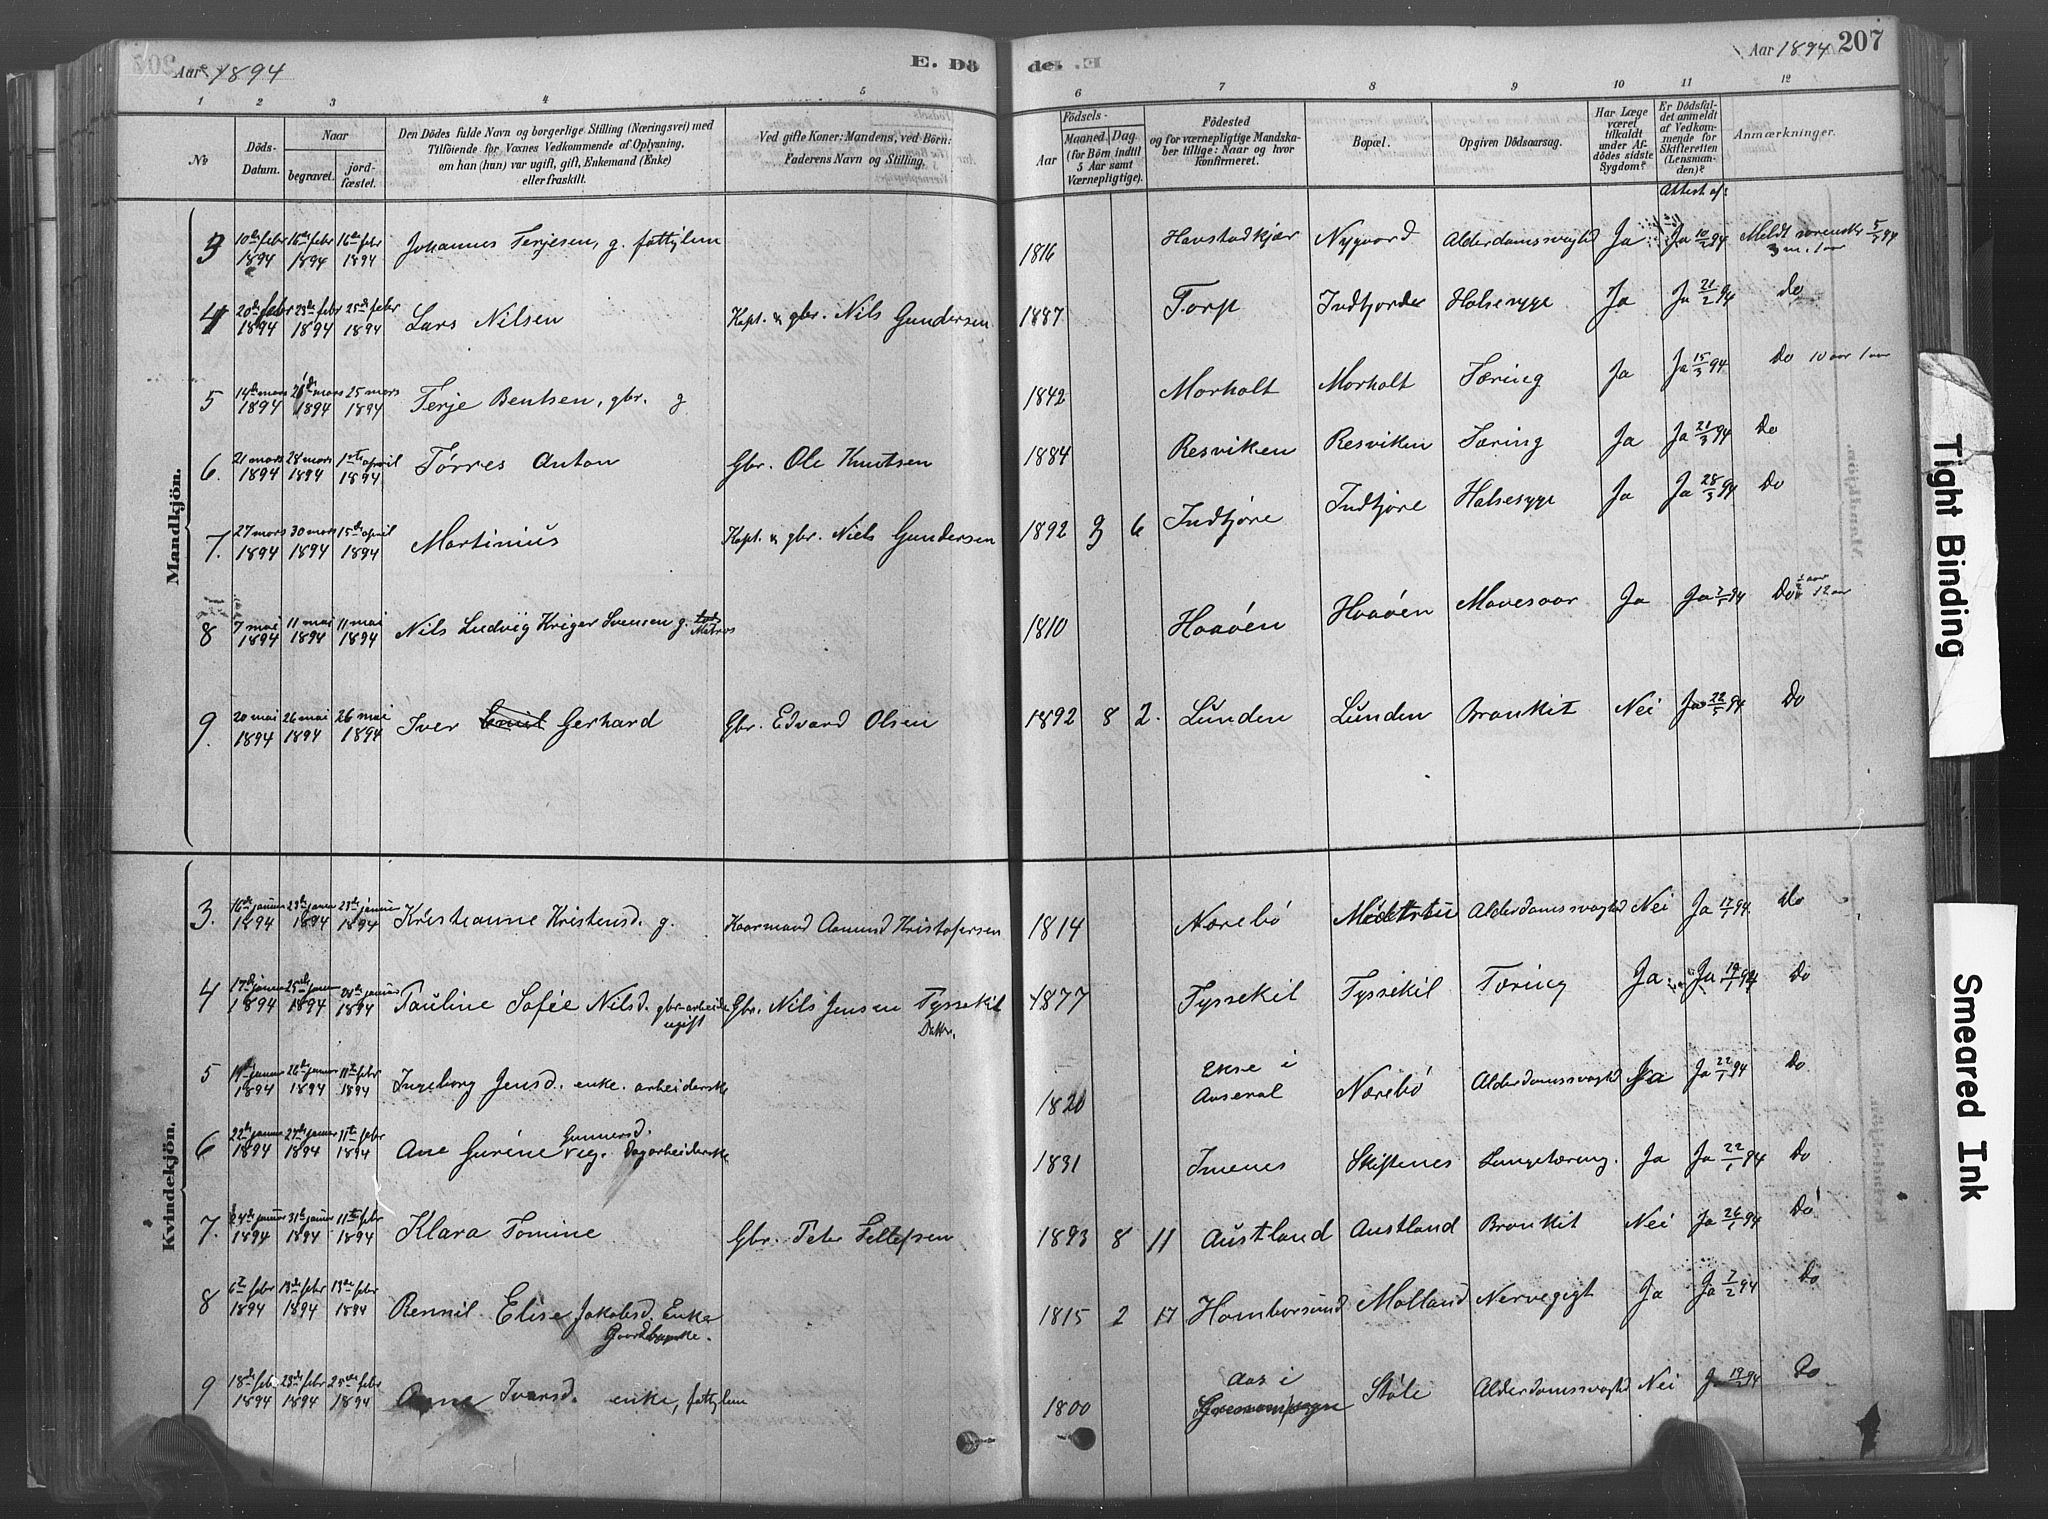 207
Aar 1894
E. Dö
de. E.
Aar 1894
1 2 3 4 5 6 7 8 9 10 11 12
No
Döds-Datum.
Naar
begravet.
jord-fæstet.
Den Dödes fulde Navn og borgerlige Stilling (Næringsvei) med
Tilföiende for Voxnes Vedkommende af Oplysning,
om han (hun) var ugift, gift, Enkemand (Enke)
eller fraskilt.
Ved gifte Koner: Mandens, ved Börn:
Faderens Navn og Stilling.
Födsels-
Aar
Maaned Dag
(for Börn indtil
5 Aar samt
Værnepligtige).
Födested
og for værnepligtige Mandska-
ber tillige: Naar og hvor
konfirmeret.
Bopæl.
Opgiven Dödsaarsag.
Har Læge
været
tilkaldt
under Af-
dödes sidste
Sygdom?
Er Dödsfal-
det anmeldt
af Vedkom-
mende for
Skifteretten
(Lensman-
den)?
Anmærkninger.
Attest af:
Mandkjön.
3 10de febr 1894 16de febr 1894 16de febr 1894 Johannes Terjesen, g. fattiglem 1816 Havstadkjær Nygaard Alderdomssvaghed Ja Ja 10/2 94 Meldt sorensk 5/3 94
3 m. 1 aar
4 20de febr 1894 23de febr 1894 25de febr 1894 Lars Nilsen Kapt. & gbr. Nils Gundersen 1887 Torp Indtjorde Halsesyge Ja Ja 21/2 94 do
5 14de mars 1894 21de mars 1894 25 mars 1894 Terje Bentsen, gbr. g 1842 Morholt Morholt Tæring Ja Ja 15/3 94 Do 10 aar 1 aar
6. 21 mars 1894 28 mars 1894 1ste april 1894 Törres Anton Gbr. Ole Knutsen 1884 Resviken Resviken Tæring Ja Ja 21/3 94 Do
7. 27 mars 1894 30 mars 1894 15de april 1894 Martinius Kapt. & gbr. Niels Gundersen 1892 3 6 Indtjöre Indtjöre Halsesyge Ja Ja 28/3 94 Do
8 7 mai 1894 11 mai 1894 11 mai 1894 Nils Ludvig Kriger Svensen g. Matros 1810 Haaöen Haaöen Mavesaar Ja Ja 7/5 94 Do 12 aar
9. 20 mai 1894 26 mai 1894 26 mai 1894 Iver Emil Gerhard Gbr. Edvard Olsen 1892 8 2. Lunden Lunden Bronkit Nei Ja 22/5 94 Do
Kvindekjön.
3. 16de januar 1894 23de januar 1894 23de januar 1894 Kristianne Kristensd. g. Kaarmand Aamund Kristofersen 1814 Nærebö Alderdomssvaghed Nei Ja 17/1 94 Do
4 17de januar 1894 25de januar 1894 28de januar 1894 Pauline Sofie Nilsd. gbr-arbeide Gbr. Nils Jensen Tyssekil 1877 Tyssekil Tyssekil Tæring Ja Ja 19/1 94 Do
ugift Datter.
5 19de januar 1894 26de januar 1894 11te febr 1894 Ingeborg Jensd. enke. arbeiderske 1820 Ekre i Nærebö Alderdomssvaghed Ja Ja 22/1 94 Do
6 22de januar 1894 27de januar 1894 11te febr 1894 Ane Gurine Gunnersd. ug. Dagarbeiderske 1831 Imenes Skiftenes Lungetæring. Ja Ja 22/1 94 Do
7. 24de januar 1894 31te januar 1894 11te febr 1894 Klara Tomine Gbr. Peter Tellefsen 1893 8 11 Austland Austland Bronkit Nei Ja 26/1 94 Do
8 6te febr 1894 13de febr 1894 13de febr 1894 Rennil Elise Jakobsd. Enke 1815 2 17 Homborsund Molland Nervegigt Ja Ja 7/2 94 Do
9 18de febr 1894 23de febr 1894 25de febr 1894 Anne Ivarsd. enke, fattiglem 1800 Aas i Støle Alderdomssvaghed Nei Ja 19/2 94 Do
Tight Binding
Smeared Ink